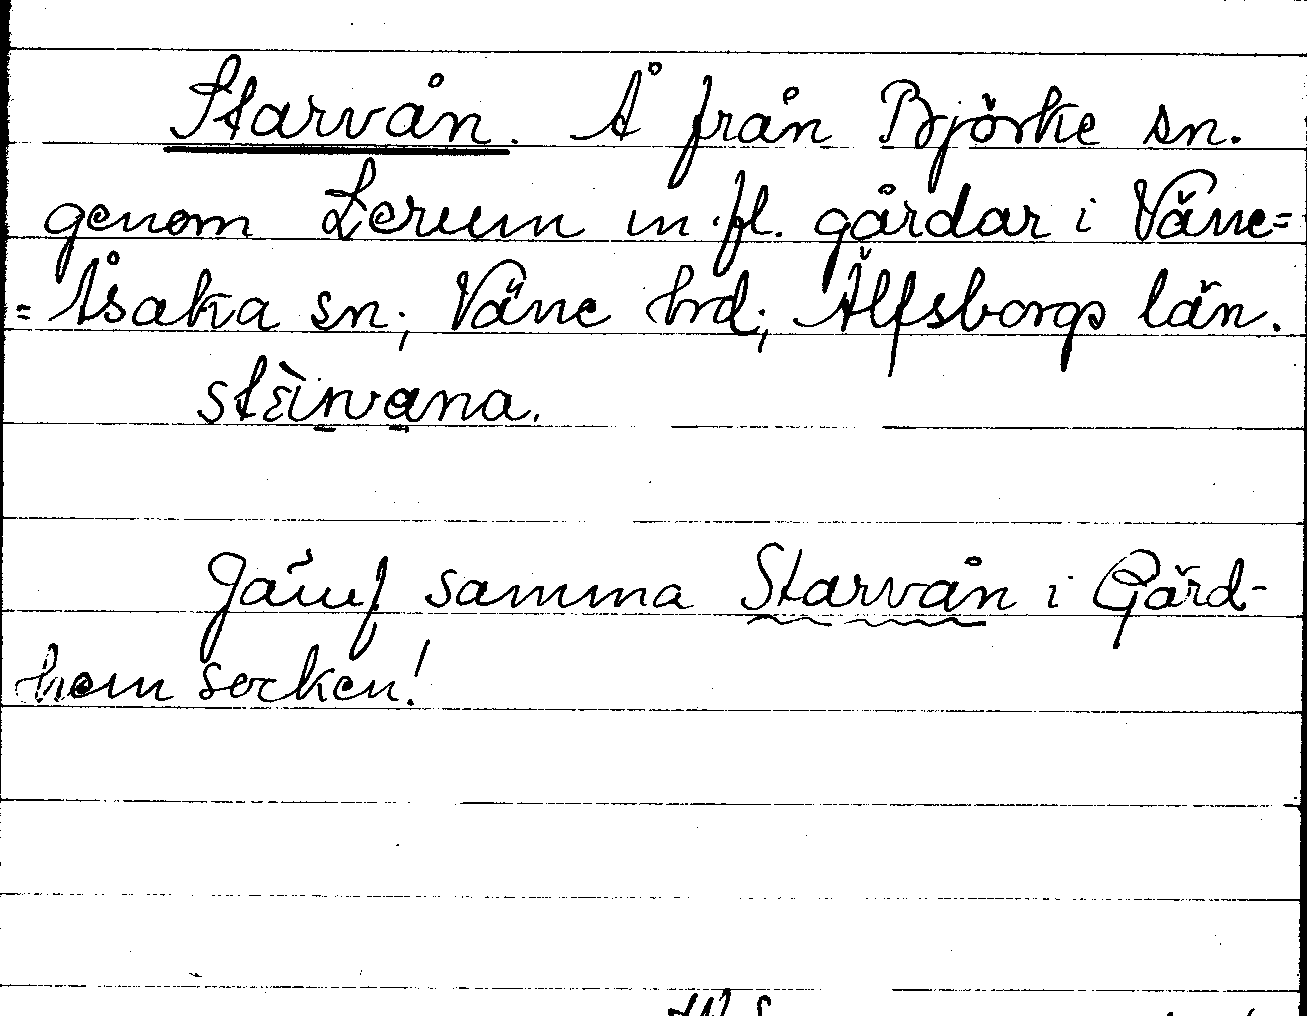 Starvån. Å från Björke sn.
genom Lerum m.fl. gårdar i Väne=
=Åsaka sn; Väne hrd; Älfsborgs län.
Jämf samma Starvån i Gärd-
hem socken!